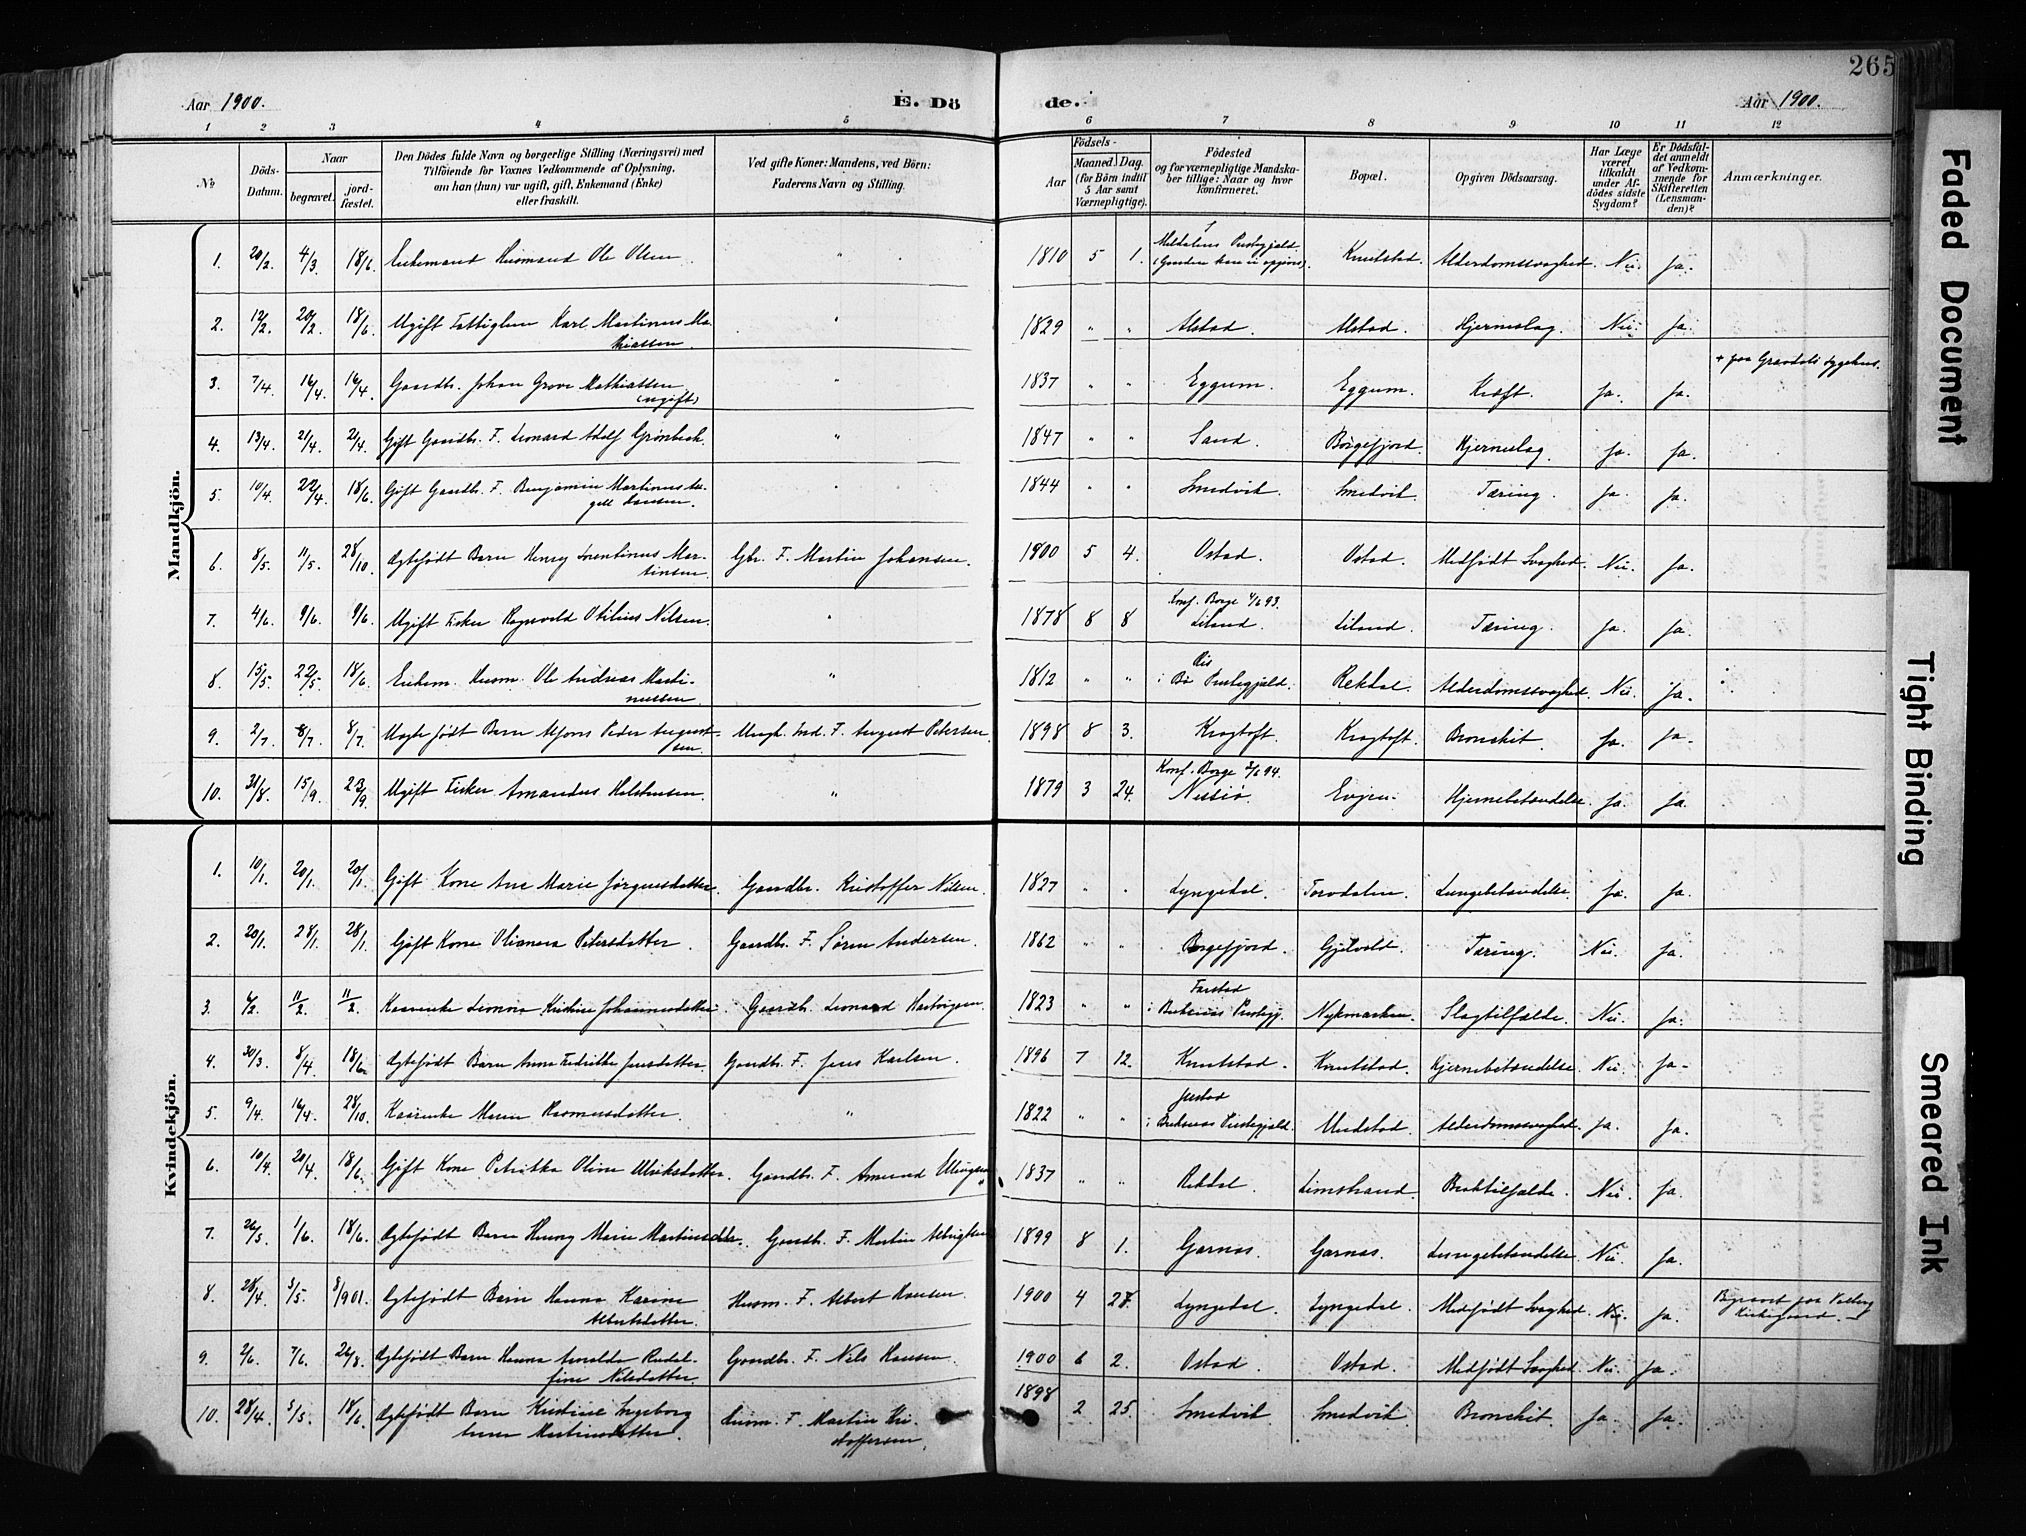 265
Aar 1900.
E. Dö
de.
Aar 1900.
1 2 3 4 5 6 7 8 9 10 11 12
No
Döds-Datum.
Naar
begravet.
jord-fæstet.
Den Dödes fulde Navn og borgerlige Stilling (Næringsvei) med
Tilföiende for Voxnes Vedkommende af Oplysning,
om han (hun) var ugift, gift, Enkemand (Enke)
eller fraskilt.
Ved gifte Koner: Mandens, ved Börn:
Faderens Navn og Stilling.
Födsels-
Aar
Maaned Dag.
(for Börn indtil
5 Aar samt
Værnepligtige).
Födested
og for værnepligtige Mandska-
ber tillige: Naar og hvor
konfirmeret.
Bopæl.
Opgiven Dödsaarsag.
Har Læge
været
tilkaldt
under Af-
dödes sidste
Sygdom?
Er Dödsfal-
det anmeldt
af Vedkom-
mende for
Skifteretten
(Lensman-
den)?
Anmærkninger.
Mandkjön.
1. 20/2. 4/3. 18/6. Enkemand Husmand Ole Olsen. " 1810 5 1. Prestegjeld. Knutstad. Alderdomssvaghed. Nei. Ja.
2. 12/2. 20/2. 18/6. Ugift Fattiglem Karl Martinus Ma-
thiassen. " 1829 " " Alstad. Alstad. Hjerneslag. Nei. Ja.
3. 7/4. 16/4. 16/4. Gaardb. Johan Grove Mathiassen
(ugift) " 1837 " " Eggum. Eggum. Kræft. Ja. Ja. + paa Gravdals Sygehus.
4. 13/4. 21/4. 21/4. Gift Gaardbr. F. Leonard Adolf Grønbech. " 1847 " " Sand. Borgefjord. Hjerneslag. Ja. Ja.
5. 10/4. 22/4. 18/6. Gift Gaardb. F. Benjamin Martinus
Hansen. " 1844 " " Smedvik. Smedvik. Tæring. Ja. Ja.
6. 8/5. 11/5. 28/10. Ægtefødt Barn Henry Lorentinus Mar-
tinsen. Gbr. F. Martin Johansen. 1900 5 4. Ostad. Ostad. Medfødt Svaghed. Nei. Ja.
7. 4/6. 9/6. 9/6. Ugift Fisker Ragnvald Otilius Nilsen. " 1878 8 8 Konf. Borge 4/6 93.
Liland. Liland. Tæring. Ja. Ja.
8. 15/5. 22/5. 18/6. Enkem. Husm. Ole Andreas Marti-
nussen. " 1812 " " i Bø Prestegjeld. Rekdal. Alderdomssvaghed. Nei. Ja.
9. 2/7. 8/7. 8/7. Uægtefødt Barn Alfons Peder August-
sen. Ungk. Ind. F. August Petersen. 1898 8 3. Kragtoft. Kragtoft. Bronchit. Ja. Ja.
10. 31/8. 15/9. 23/9. Ugift Fisker Amandus Halstensen. " 1879 3 24. Konf. Borge 3/6 94.
Evjen. Hjernebetændelse. Ja. Ja.
Kvindekjön.
1. 10/1. 20/1. 20/1. Gift Kone Ane Marie Jørgensdatter. Gaardbr. Kristoffer Nilsen. 1827 " " Lyngedal. Torvdalen. Lungebetændelse. Ja. Ja.
2. 20/1. 28/1. 28/1. Gift Kone Olianna Petersdatter. Gaardb. F. Søren Andersen. 1862 " " Borgefjord. Gjelvold. Tæring. Nei. Ja.
3. 4/2. 11/2. 11/2. Kaarenke Leonora Kristine Johannesdatter. Gaardb. Leonard 1823 " " Farstad
i Buksnes Prestegj. Nykmarken. Slagtilfælde. Nei. Ja.
4. 30/3. 8/4. 18/6. Ægtefødt Barn Anna Fredrikke Jensdatter. Gaardb. F. Jens Karlsen. 1896 7 12. Knutstad. Knutstad. Hjernebetændelse. Nei. Ja.
5. 9/4. 16/4. 28/10. Kaarenke Maren Rasmusdatter. " 1822 " " Justad
i Buksnes Prestegjeld. Unstad. Alderdomssvaghed. Ja. Ja.
6. 10/4. 20/4. 18/6. Gift Kone Petrikka Oline Ulriksdatter. Gaardb. F. Amund 1837 " " Rekdal. Limstrand. Braktilfælde. Nei. Ja.
7. 26/5. 1/6. 18/6. Ægtefødt Barn Henny Marie Martinsdtr. Gaardb. F. Martin Albrigtsen 1899 8 1. Garnæs. Garnæs. Lungebetændelse. Nei. Ja.
8. 28/4. 3/5. 8/9 01. Ægtefødt Barn Hanna Karine
Albertsdatter. Husm. F. Albert Hansen. 1900 4 27. Lyngedal. Lyngedal. Medfødt Svaghed. Nei. Ja. Begravet paa Valberg
Kirkegaard.
9. 2/6. 7/6. 26/8. Ægtefødt Barn Hanna Arnolda Rudol-
fine Nilsdatter. Gaardb. F. Nils Hansen. 1900 6 2. Ostad. Ostad. Medfødt Svaghed. Nei. Ja.
10. 28/4. 5/5. 18/6. Ægtefødt Barn Kristine Ingeborg
Martinsdatter. Husm. F. Martin Kri-
stoffersen. 1898 2 25. Smedvik. Smedvik. Bronchit. Ja. Ja.
Faded Document
Tight Binding
Smeared Ink